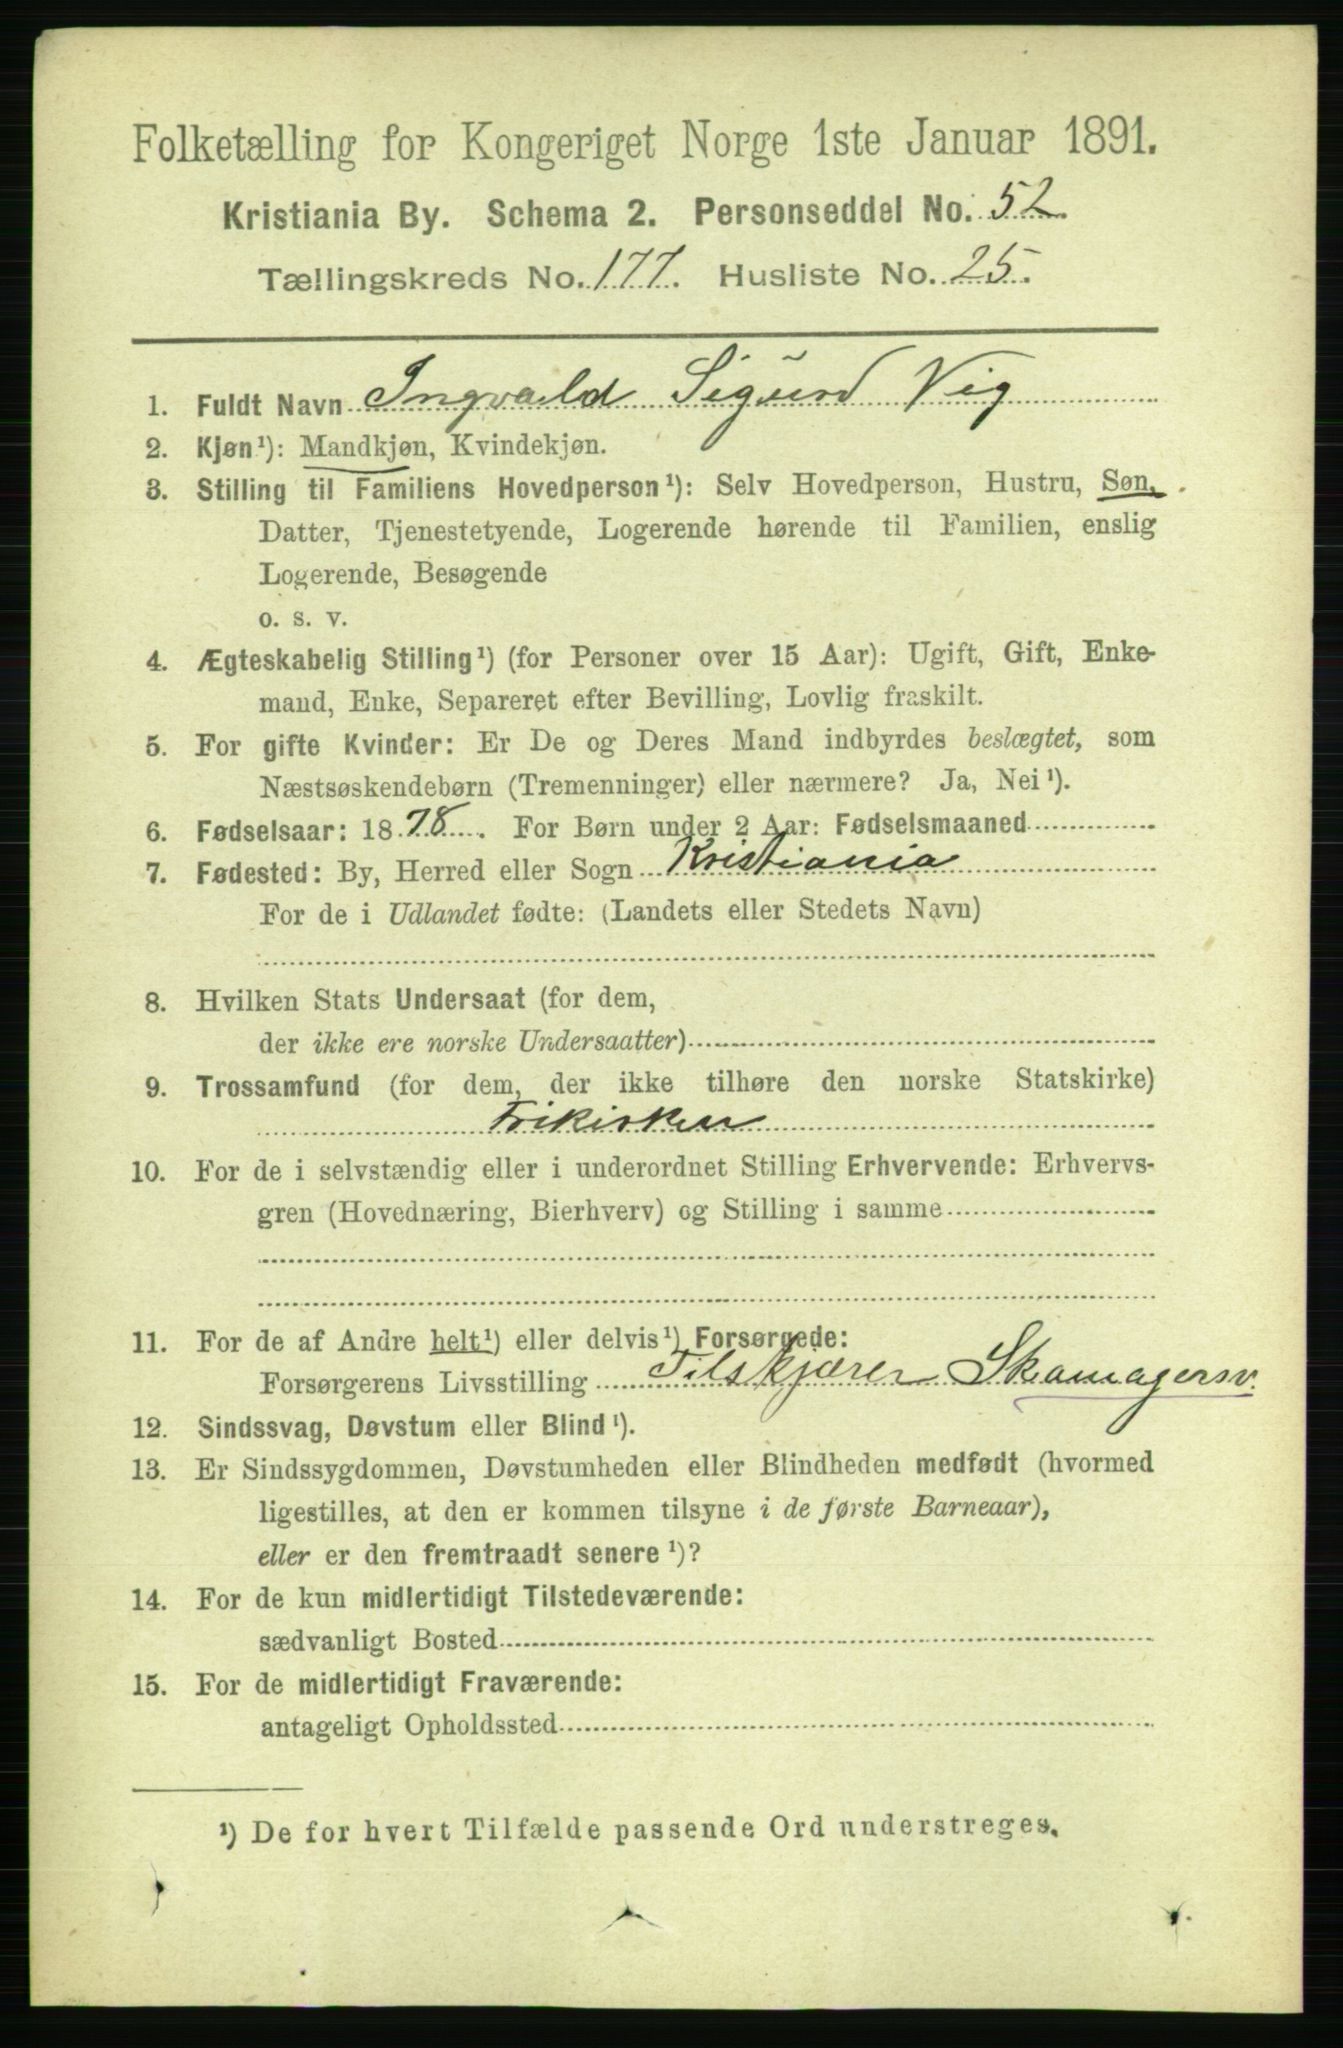 Folketælling for Kongeriget Norge 1ste Januar 1891.
Kristiania By. Schema 2. Personseddel No. 52.
Tællingskreds No. 177. Husliste No. 25.
1. Fuldt Navn Ingvald Sigurd Vig
2. Kjøn¹): Mandkjøn, Kvindekjøn.
3. Stilling til Familiens Hovedperson¹): Selv Hovedperson, Hustru, Søn,
Datter, Tjenestetyende, Logerende hørende til Familien, enslig
Logerende, Besøgende
o. s. v.
4. Ægteskabelig Stilling¹) (for Personer over 15 Aar): Ugift, Gift, Enke-
mand, Enke, Separeret efter Bevilling, Lovlig fraskilt.
5. For gifte Kvinder: Er De og Deres Mand indbyrdes beslægtet, som
Næstsøskendebørn (Tremenninger) eller nærmere? Ja, Nei¹).
6. Fødselsaar: 1878. For Børn under 2 Aar: Fødselsmaaned
7. Fødested: By, Herred eller Sogn Kristiania
For de i Udlandet fødte: (Landets eller Stedets Navn)
8. Hvilken Stats Undersaat (for dem,
der ikke ere norske Undersaatter)
9. Trossamfund (for dem, der ikke tilhøre den norske Statskirke)
Frikirken
10. For de i selvstændig eller i underordnet Stilling Erhvervende: Erhvervs-
gren (Hovednæring, Bierhverv) og Stilling i samme
11. For de af Andre helt¹) eller delvis¹) Forsørgede:
Forsørgerens Livsstilling Tilskjærer Skomagersv.
12. Sindssvag, Døvstum eller Blind¹).
13. Er Sindssygdommen, Døvstumheden eller Blindheden medfødt (hvormed
ligestilles, at den er kommen tilsyne i de første Barneaar),
eller er den fremtraadt senere¹)?
14. For de kun midlertidigt Tilstedeværende:
sædvanligt Bosted
15. For de midlertidigt Fraværende:
antageligt Opholdssted
¹) De for hvert Tilfælde passende Ord understreges.